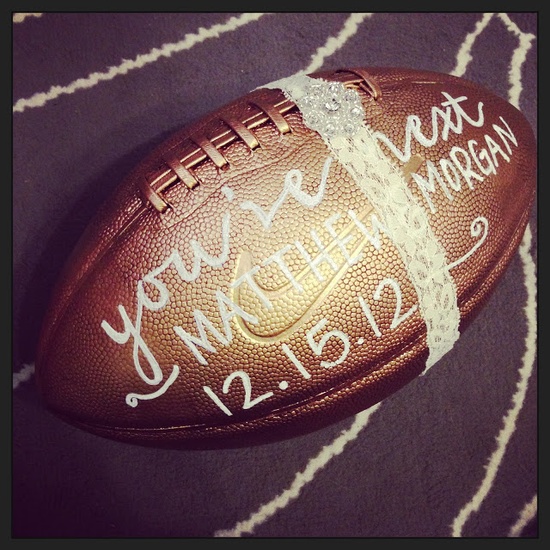 you're next
MATTHEW MORGAN
12.15.12